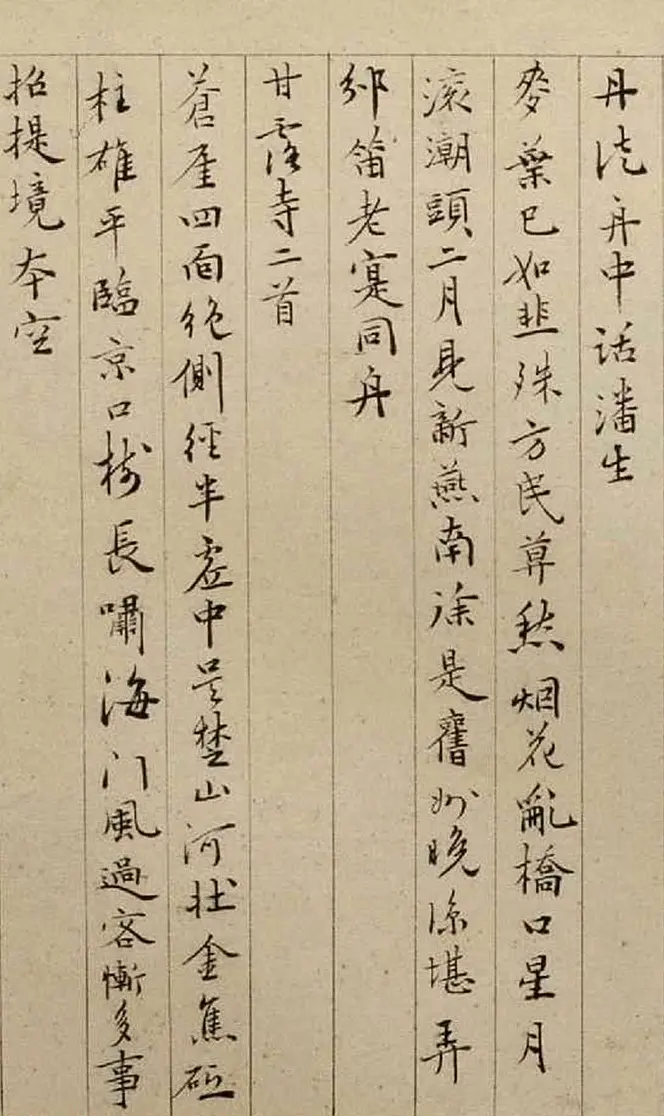 丹徒舟中話潘生
麥葉已如韭殊方民算愁烟花亂橋口星月
滚潮頭二月見新燕南徐是舊州晚涼堪弄
笛老寔同舟
甘露寺二首
蒼崖四面絶側徑半虚中吴楚山河壮金焦砥
柱雄平臨京口樹長嘯海門風過客慚多事
招提境本空